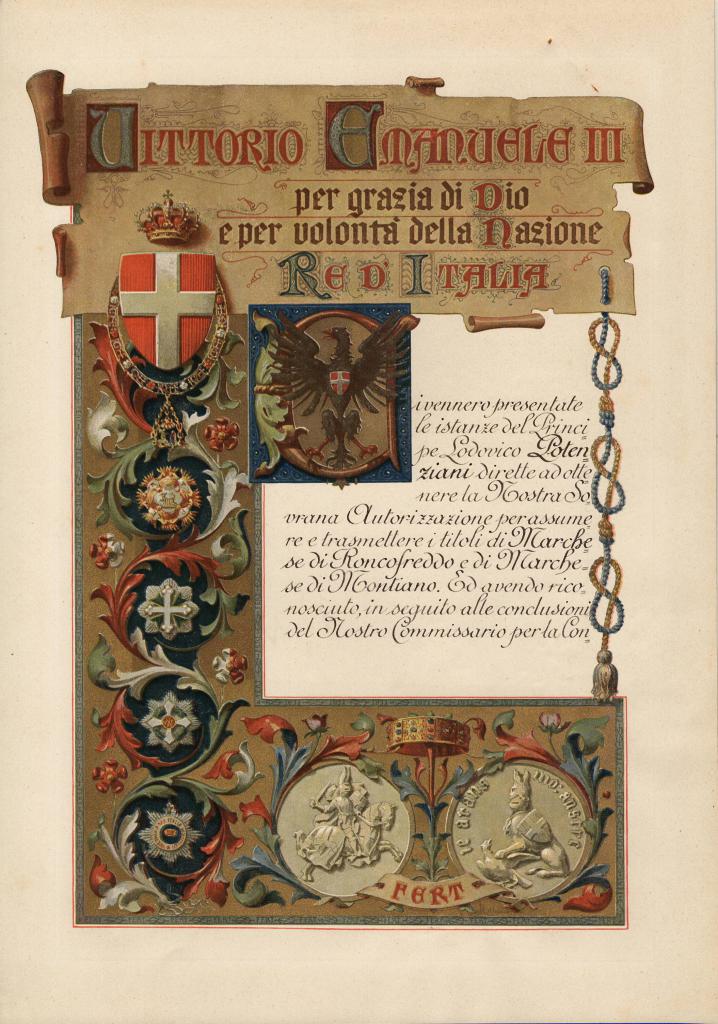 VITTORIO EMANUELE III
per grazia di Dio
e per volontà della Nazione
RE D'ITALIA
Ci vennero presentate
le istanze del Princi
pe Lodovico Poten
ziani dirette ad otte
nere la Nostra So,
vrana Autorizzazione per assume,
re e trasmettere i titoli di Marche
se di Roncofreddo e di Marche,
se di Montiano. Ed avendo rico,
nosciuto, in seguito alle conclusioni
del Nostro Commissario per la Con,
FERT